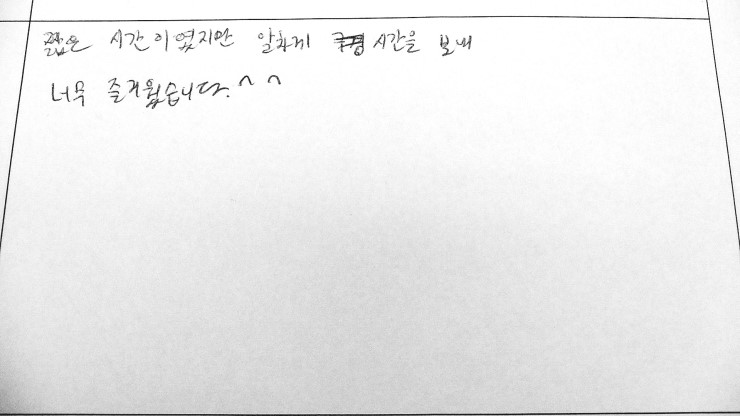 짧은 시간이였지만 알차게 시간을 보내
너무 즐거웠습니다.^^